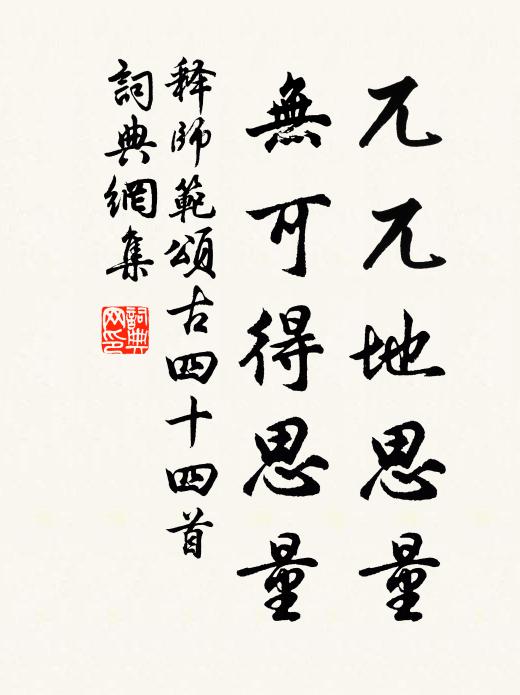 兀兀地思量
無可得思量
释師範頌古四十四首
詞典網集
詞典
网印